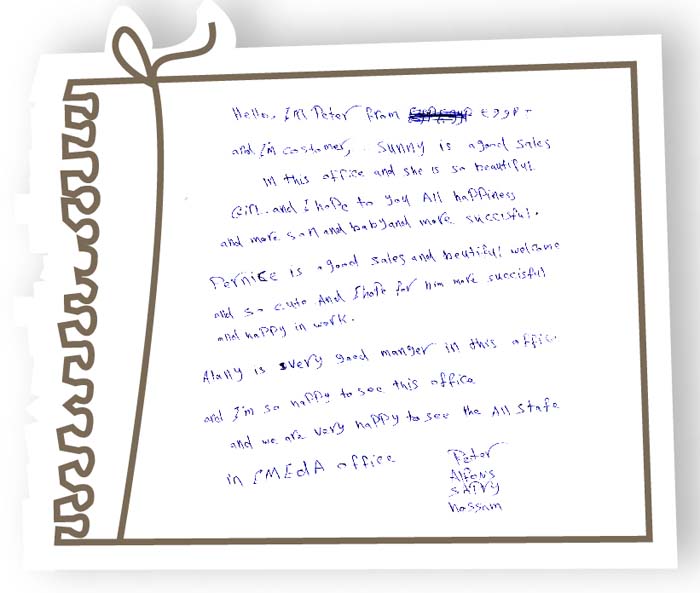 Hello, I'm Peter from Egypt
and I'm costomer, Sunny is a good sales
in this office and she is so beautiful
Girl and I hope to you All happiness
and more son and baby and more succisful.
Pernice is a good sales and beutiful welcome
and so cute And I hope for him more succisful
and happy in work.
Alany is very good manger in this office
and I'm so happy to see this office
and we are very happy to see the All stafe
in IMEdA office
Peter
Alfons
Hossam